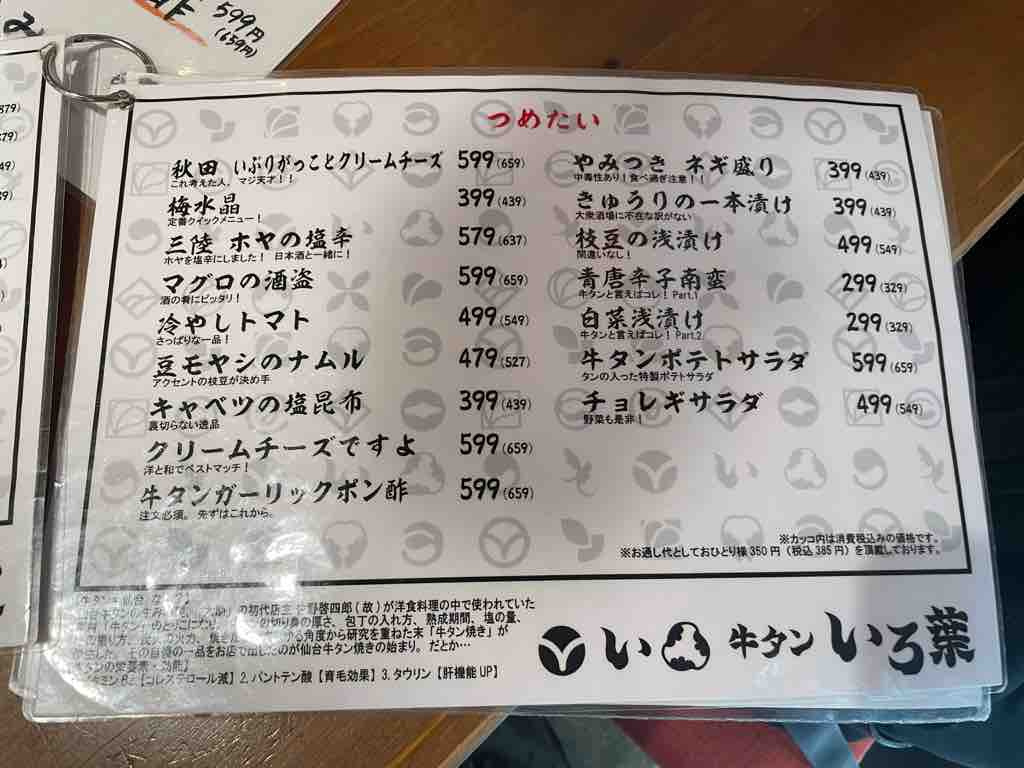 599円
(659円)
879)
879)
49)
39)
つめたい
秋田 いぶりがっことクリームチーズ 599(659)
これ考えた人、マジ天才！！
梅水晶 399(439)
定番クイックメニュー！
三陸 ホヤの塩辛 579(637)
ホヤを塩辛にしました！ 日本酒と一緒に！
マグロの酒盗 599(659)
酒の肴にピッタリ！
冷やしトマト 499(549)
さっぱりな一品！
豆モヤシのナムル 479(527)
アクセントの枝豆が決め手
キャベツの塩昆布 399(439)
裏切らない逸品
クリームチーズですよ 599(659)
洋と和でベストマッチ！
牛タンガーリックポン酢 599(659)
注文必須。 先ずはこれから。
やみつき ネギ盛り 399(439)
中毒性あり！食べ過ぎ注意！！
きゅうりの一本漬け 399(439)
大衆酒場に不在な訳がない
枝豆の浅漬け 499(549)
間違いなし！
青唐辛子南蛮 299(329)
牛タンと言えばコレ！ Part.1
白菜浅漬け 299(329)
牛タンと言えばコレ！ Part.2
牛タンポテトサラダ 599(659)
タンの入った特製ポテトサラダ
チョレギサラダ 499(549)
野菜も是非！
※カッコ内は消費税込みの価格です。
※お通し代としておひとり様350円(税込385円)を頂戴しております。
の初代店主 野啓四郎(故)が洋食料理の中で使われていた
の切り身の厚さ、包丁の入れ方、熟成期間、塩の量、
角度から研究を重ねた末「牛タン焼き」が
その自慢の一品をお店で出したのが仙台牛タン焼きの始まり。だとか…
の栄養素・効能】
【コレステロール減】2. パントテン酸【育毛効果】3. タウリン【肝機能UP】
い 牛タン いろ葉